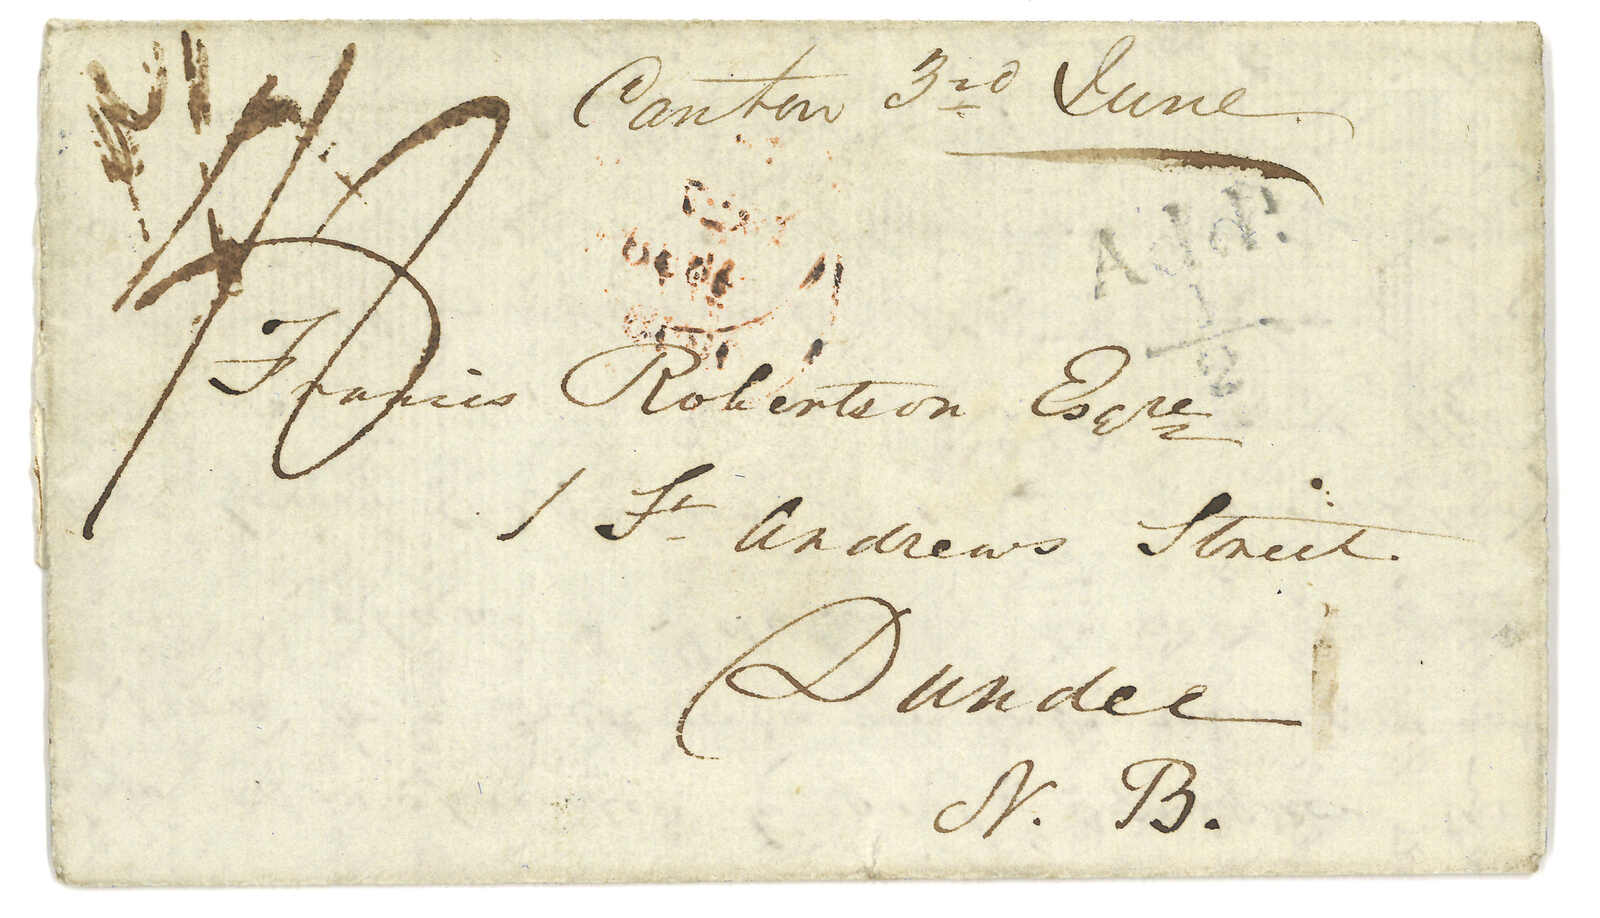 Canton 3rd June
Addl.
1/2
Francis Robertson Esqre
1 St Andrews Street.
Dundee
N. B.